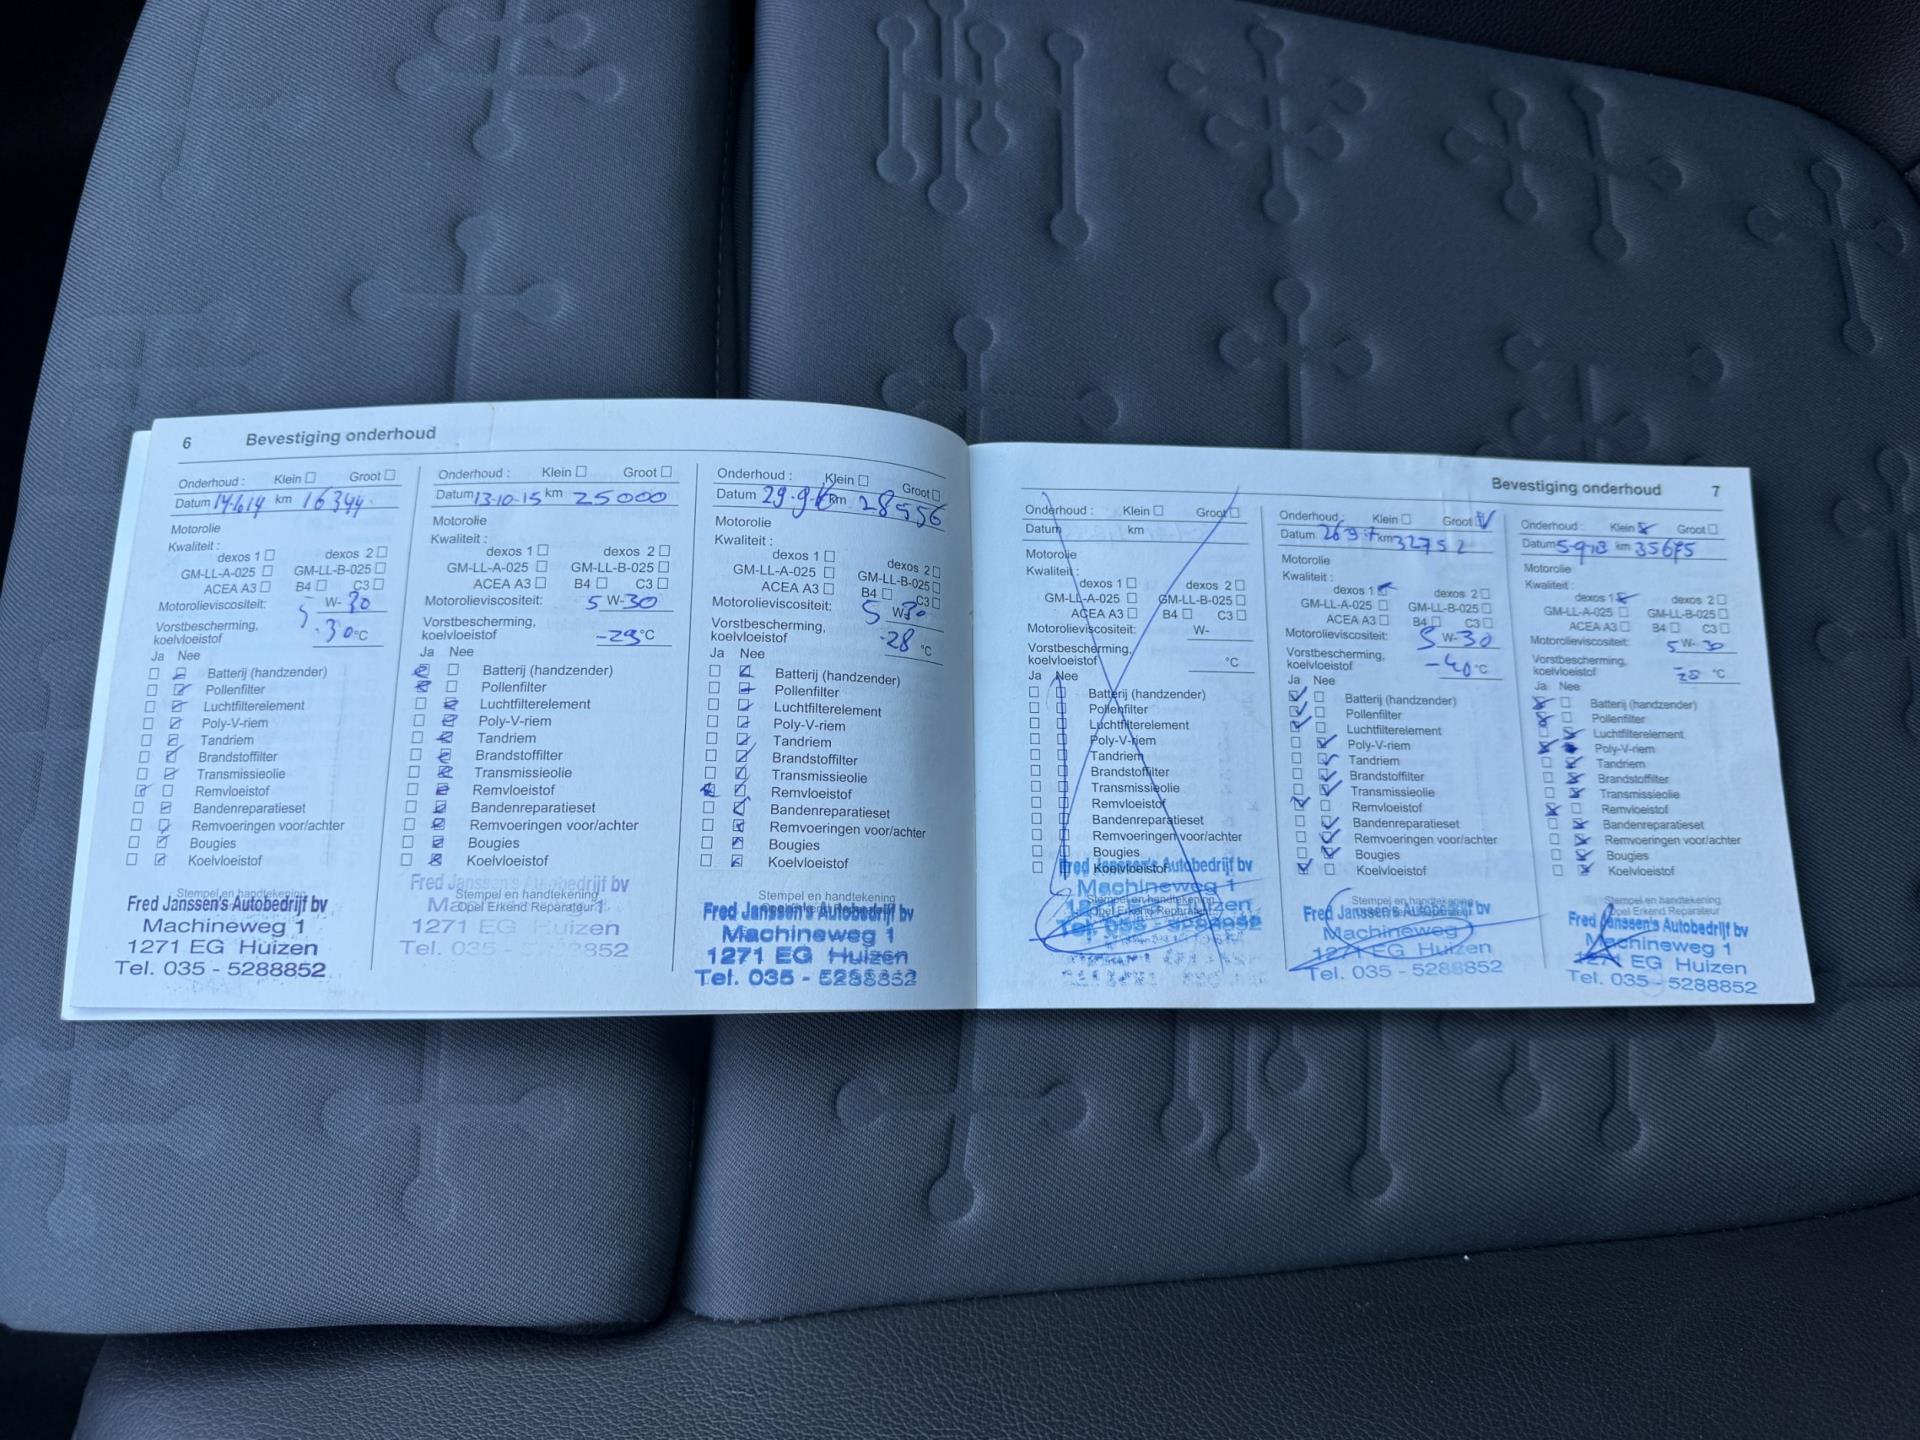 6 Bevestiging onderhoud
Onderhoud : Klein Groot
Datum 14.6.14 km 16344
Motorolie
Kwaliteit :
dexos 1 dexos 2
GM-LL-A-025 GM-LL-B-025
ACEA A3 B4 C3
Motorolieviscositeit: 5 W-30
Vorstbescherming,
koelvloeistof -30 °C
Ja Nee
Batterij (handzender)
Pollenfilter
Luchtfilterelement
Poly-V-riem
Tandriem
Brandstoffilter
Transmissieolie
Remvloeistof
Bandenreparatieset
Remvoeringen voor/achter
Bougies
Koelvloeistof
Stempel en handtekening
Fred Janssen's Autobedrijf bv
Machineweg 1
1271 EG Huizen
Tel. 035 - 5288852
Onderhoud : Klein Groot
Datum 13-10-15 km 25000
Motorolie
Kwaliteit :
dexos 1 dexos 2
GM-LL-A-025 GM-LL-B-025
ACEA A3 B4 C3
Motorolieviscositeit: 5 W-30
Vorstbescherming,
koelvloeistof -29 °C
Ja Nee
Batterij (handzender)
Pollenfilter
Luchtfilterelement
Poly-V-riem
Tandriem
Brandstoffilter
Transmissieolie
Remvloeistof
Bandenreparatieset
Remvoeringen voor/achter
Bougies
Koelvloeistof
Fred Janssen's Autobedrijf bv
Stempel en handtekening
Opel Erkend Reparateur
1271 EG Huizen
Tel. 035 - 5288852
Onderhoud : Klein Groot
Datum 29-9-16 km 28556
Motorolie
Kwaliteit :
dexos 1 dexos 2
GM-LL-A-025 GM-LL-B-025
ACEA A3 B4 C3
Motorolieviscositeit: 5 W-30
Vorstbescherming,
koelvloeistof -28 °C
Ja Nee
Batterij (handzender)
Pollenfilter
Luchtfilterelement
Poly-V-riem
Tandriem
Brandstoffilter
Transmissieolie
Remvloeistof
Bandenreparatieset
Remvoeringen voor/achter
Bougies
Koelvloeistof
Stempel en handtekening
Fred Janssen's Autobedrijf bv
Machineweg 1
1271 EG Huizen
Tel. 035 - 5288852
Bevestiging onderhoud 7
Onderhoud : Klein Groot
Datum km
Motorolie
Kwaliteit :
dexos 1 dexos 2
GM-LL-A-025 GM-LL-B-025
ACEA A3 B4 C3
Motorolieviscositeit: W-
Vorstbescherming,
koelvloeistof °C
Ja Nee
Batterij (handzender)
Pollenfilter
Luchtfilterelement
Poly-V-riem
Tandriem
Brandstoffilter
Transmissieolie
Remvloeistof
Bandenreparatieset
Remvoeringen voor/achter
Bougies
Koelvloeistof
Fred Janssen's Autobedrijf bv
Machineweg 1
Stempel en handtekening
1271 EG Huizen
Opel Erkend Reparateur
Tel. 035 - 5288852
Onderhoud : Klein Groot
Datum km 32752
Motorolie
Kwaliteit :
dexos 1 dexos 2
GM-LL-A-025 GM-LL-B-025
ACEA A3 B4 C3
Motorolieviscositeit: 5 W-30
Vorstbescherming,
koelvloeistof -40 °C
Ja Nee
Batterij (handzender)
Pollenfilter
Luchtfilterelement
Poly-V-riem
Tandriem
Brandstoffilter
Transmissieolie
Remvloeistof
Bandenreparatieset
Remvoeringen voor/achter
Bougies
Koelvloeistof
Stempel en handtekening
Fred Janssen's Autobedrijf bv
Machineweg
1271 EG Huizen
Tel. 035 - 5288852
Onderhoud : Klein Groot
Datum 5-9-18 km 35675
Motorolie
Kwaliteit :
dexos 1 dexos 2
GM-LL-A-025 GM-LL-B-025
ACEA A3 B4 C3
Motorolieviscositeit: 5 W- 30
Vorstbescherming,
koelvloeistof °C
Ja Nee
Batterij (handzender)
Pollenfilter
Luchtfilterelement
Poly-V-riem
Tandriem
Brandstoffilter
Transmissieolie
Remvloeistof
Bandenreparatieset
Remvoeringen voor/achter
Bougies
Koelvloeistof
Stempel en handtekening
Opel Erkend Reparateur
Fred Janssen's Autobedrijf bv
Machineweg 1
1271 EG Huizen
Tel. 035 - 5288852